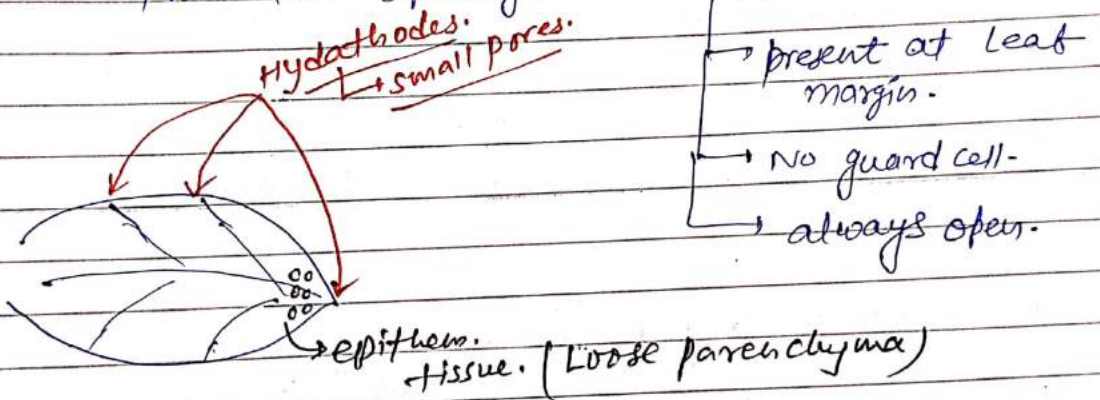 Hydathodes.
small pores.
present at Leaf
margin.
No guard cell.
always open.
epithem.
tissue. (Loose parenchyma)